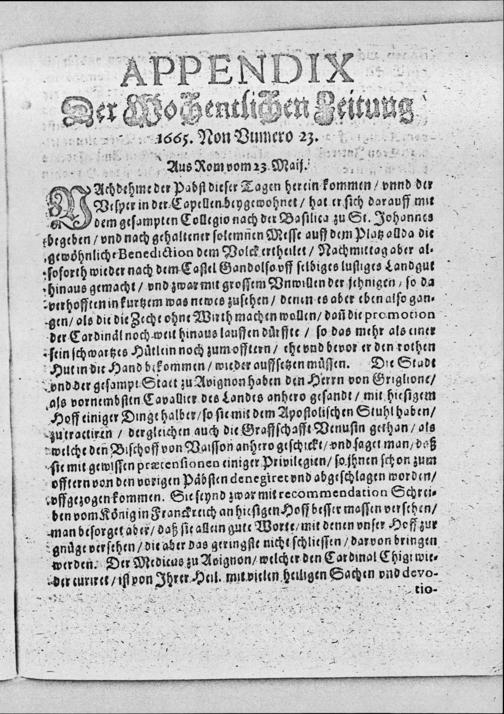 APPENDIX
Der Wochentlichen Zeitung
1665. Non Numero 23.
Aus Rom vom 23. Maij.
NAchdehme der Pabst dieser Tagen herein kommen / vnnd der
Vesper in der Capellen beygewohnet / hat er sich darauff mit
dem gesampten Collegio nach der Basilica zu St. Johannes
begeben / vnd nach gehaltener solemnen Messe auff dem Platz allda die
gewöhnliche Benediction dem Volck ertheilet / Nachmittag aber al-
soforth wieder nach dem Castel Gandolfo vff selbiges lustiges Landgut
hinaus gemacht / vnd zwar mit grossem Vnwillen der jehnigen / so da
verhofften in kurtzem was newes zusehen / denen es aber eben also gan-
gen / als die die Zeche ohne Wirth machen wollen / dañ die promotion
der Cardinäl noch weit hinaus lauffen dürffte / so das mehr als einer
sein schwartzes Hütlein noch zum offtern / ehe vnd bevor er den rothen
Hut in die Hand bekommen / wieder auffsetzen müssen. Die Stadt
vnd der gesampt Staet zu Avignon haben den Herrn von Griglione/
als vornembsten Cavallier des Landes anhero gesandt / mit hiesigem
Hoff einiger Dinge halber / so sie mit dem Apostolischen Stuhl haben/
zu tractiren / dergleichen auch die Graffschafft Venusin gethan / als
welche den Bischoff von Vaison anhero geschickt / vnd saget man / daß
sie mit gewissen prætensionen einiger Privilegien / so ihnen schon zum
offtern von den vorigen Päbsten denegiret vnd abgeschlagen worden/
vffgezogen kommen. Sie seynd zwar mit recommendation Schrei-
ben vom König in Franckreich an hiesigen Hoff besser massen versehen/
man besorget aber / daß sie allein gute Worte / mit denen vnser Hoff zur
gnüge versehen / die aber das geringste nicht schliessen / darvon bringen
werden. Der Medicus zu Avignon / welcher den Cardinal Chigi wie-
der curiret / ist von Ihrer Heil. mit vielen heiligen Sachen vnd devo-
tio-